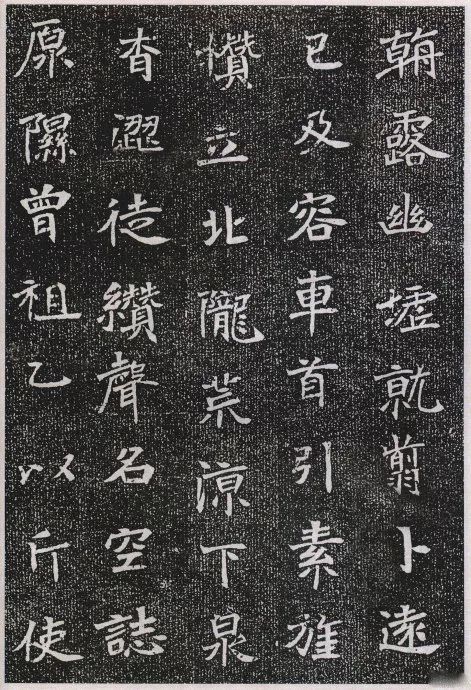 朝露幽墟就翦卜遠
已及容車首引素旌
攢立北隴荒涼下泉
杳澀徒纘聲名空誌
原隰曾祖乙以斤使